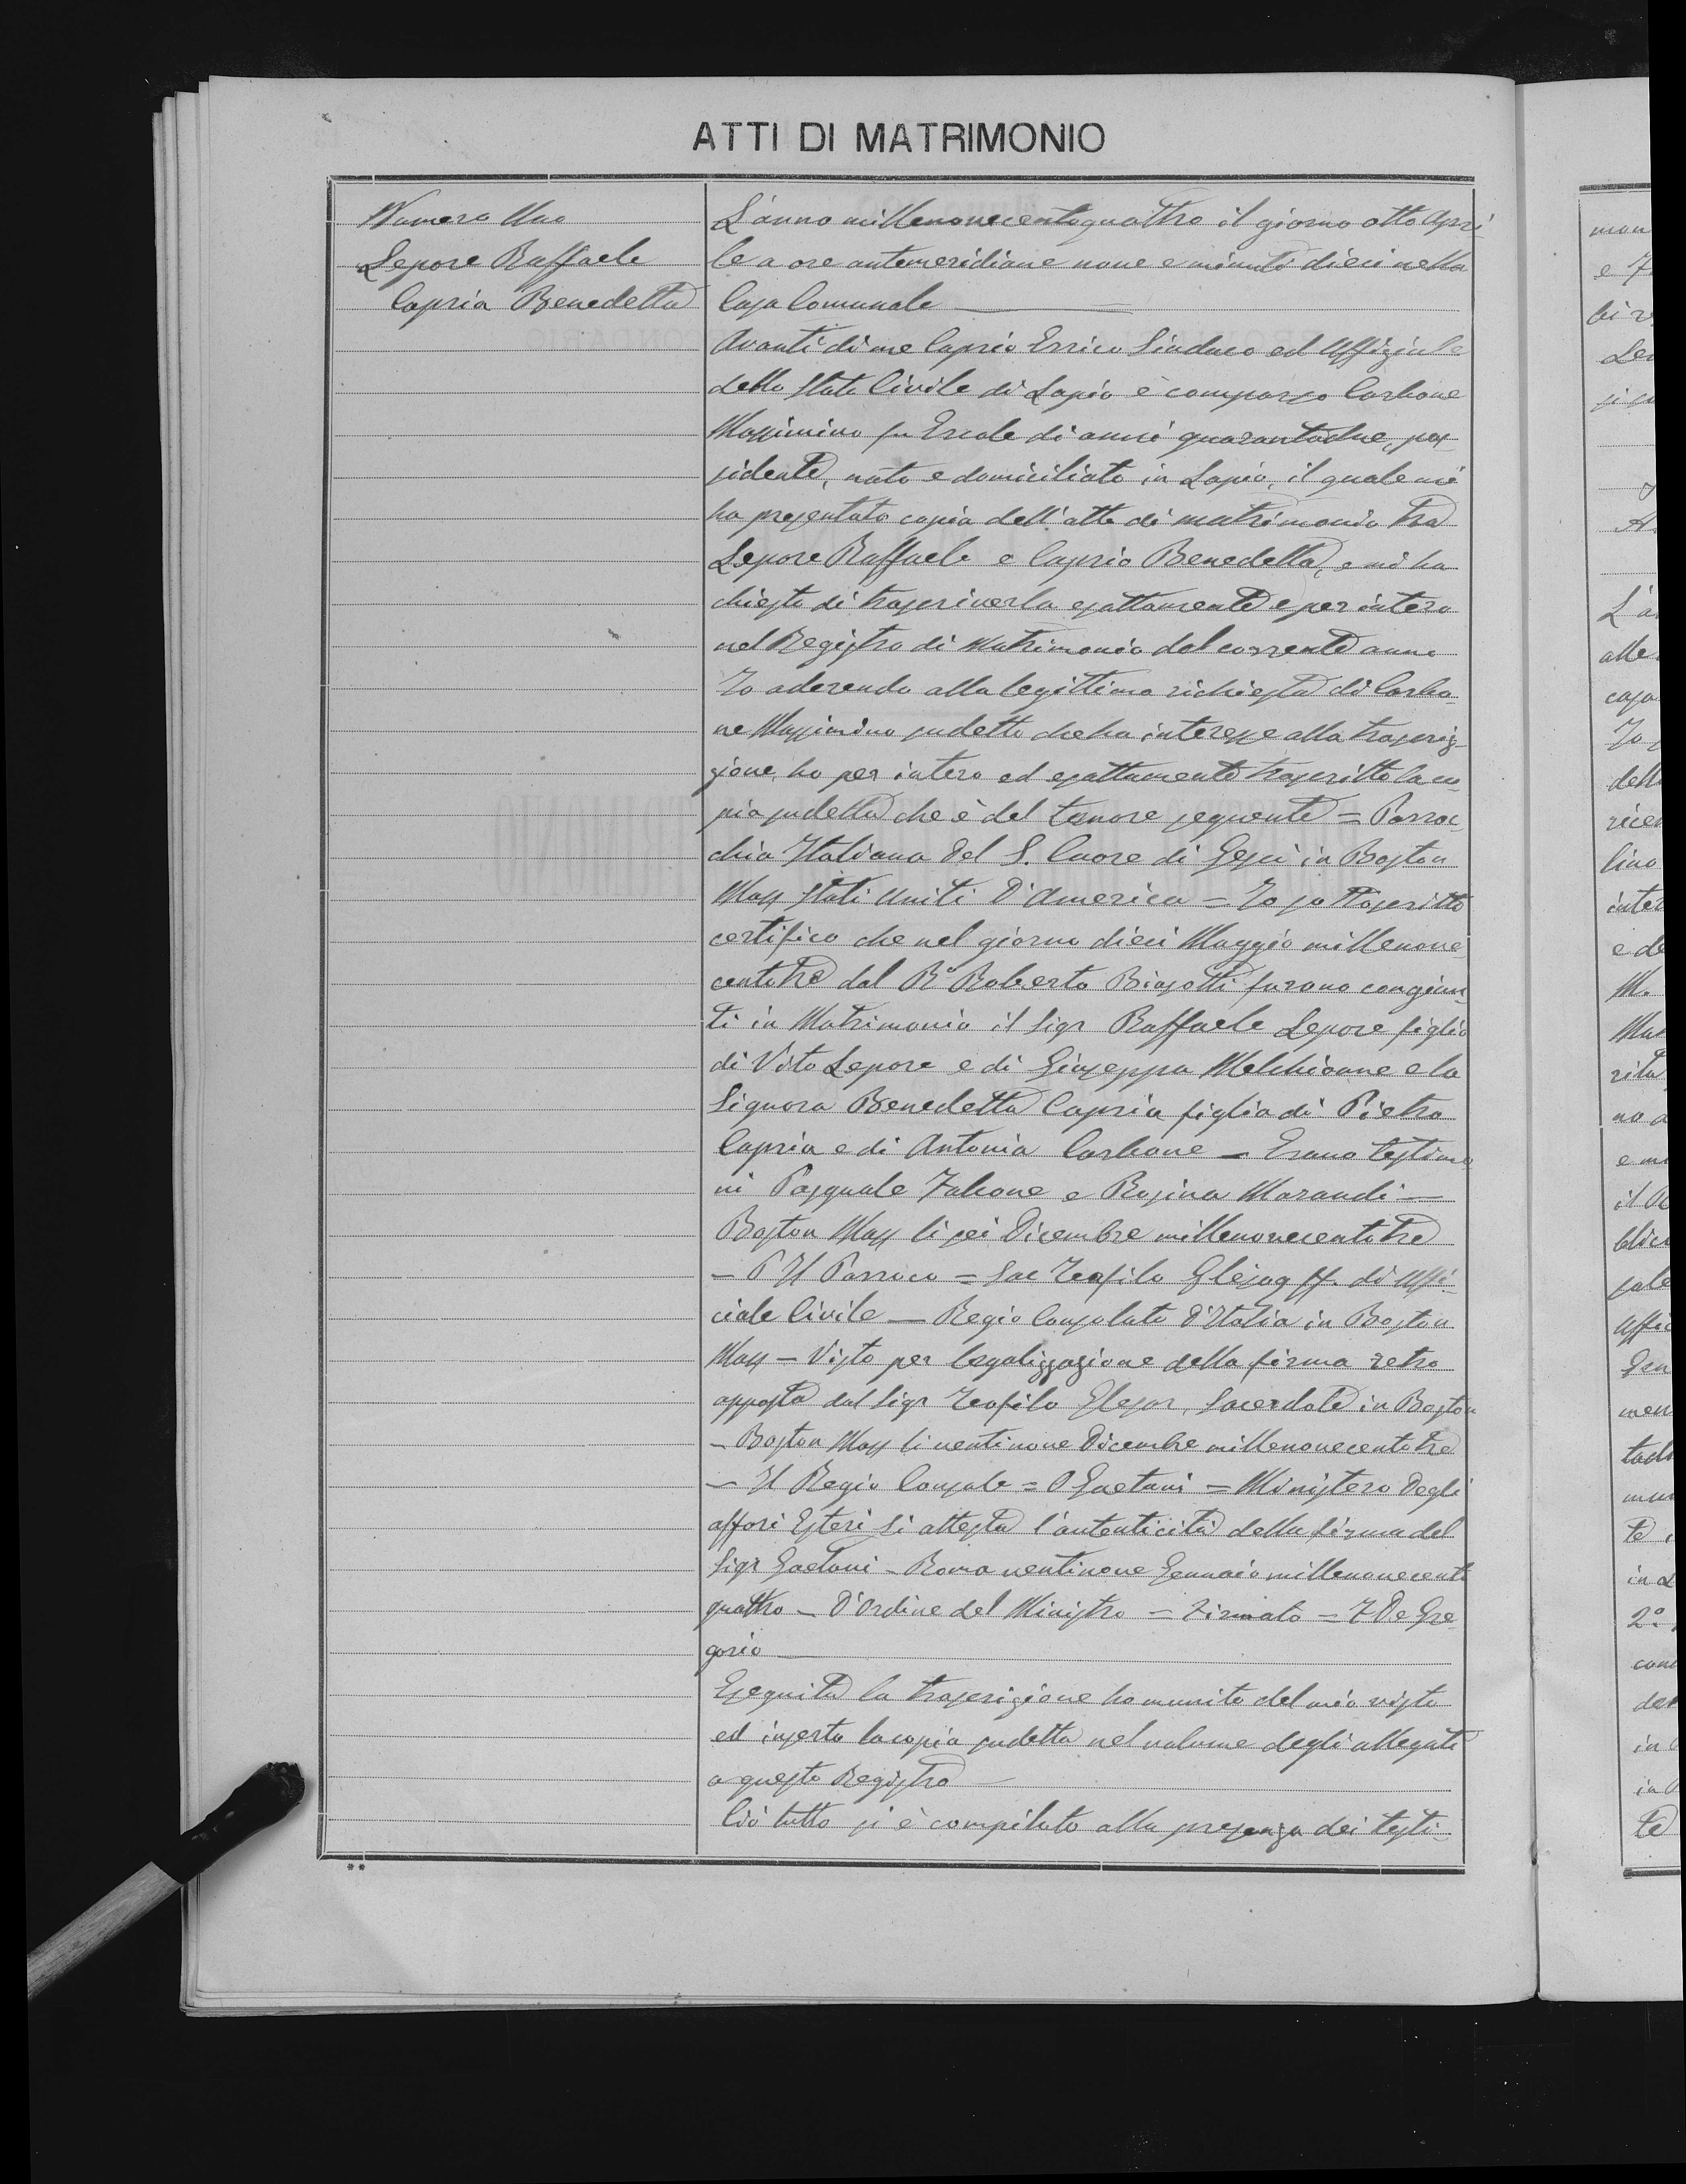 ATTI DI MATRIMONIO
Numero Uno
Lepore Raffaele
Caprio Benedetta
L'anno millenovecentoquattro il giorno otto Apri-
le a ore antemeridiane nove e minuti dieci nella
Casa Comunale
Avanti di me Caprio Errico Sindaco ed Uffiziale
dello Stato Civile di Lapio è comparso Carbone
Massimino fu Ercole di anni quarantadue, pos-
sidente, nato e domiciliato in Lapio, il quale mi
ha presentato copia dell'atto di matrimonio tra
Lepore Raffaele e Caprio Benedetta, e mi ha
chiesto di trascriverla esattamente e per intero
nel Registro di Matrimonio del corrente anno
Io aderendo alla legittima richiesta di Carbo-
ne Massimino sudetto che ha interesse alla trascriz-
zione, ho per intero ed esattamente trascritto la co-
pia sudetta che è del tenore seguente = Parroc-
chia Italiana del S. Cuore di Gesù in Boston
Mass Stati Uniti D'America = Io sottoscritto
certifico che nel giorno dieci Maggio millenove
centotre dal Ro Roberto Biasotti furono congiun-
ti in Matrimonio il Sigr Raffaele Lepore figlio
di Vito Lepore e di Giuseppa Melchionne e la
Signora Benedetta Capria figlia di Pietro
Capria e di Antonia Carbone — Erano testimo
ni Pasquale Falcone e Rosina Morandi —
Boston Mass li sei Dicembre millenovecentotre
— P Il Parroco = Sac Teofilo Glesog ff. di Uffi-
ciale Civile — Regio Consolato D'Italia in Boston
Mass — Visto per legalizzazione della firma retro
apposta dal Sigr Teofilo Glesor, Sacerdote in Boston
— Boston Mass li ventinove Dicembre millenovecentotre
— Il Regio Console = O Gaetani = Ministero Degli
affari Esteri Si attesta l'autenticità della firma del
Sigr Gaetani — Roma ventinove Gennaio millenovecento
quattro — D'Ordine del Ministro — Firmato = F De Gre
gorio
Eseguita la trascrizione ho munito del mio visto
ed inserto la copia sudetta nel volume degli allegati
a questo Registro
Ciò tutto si è compilato alla presenza dei testi-
**